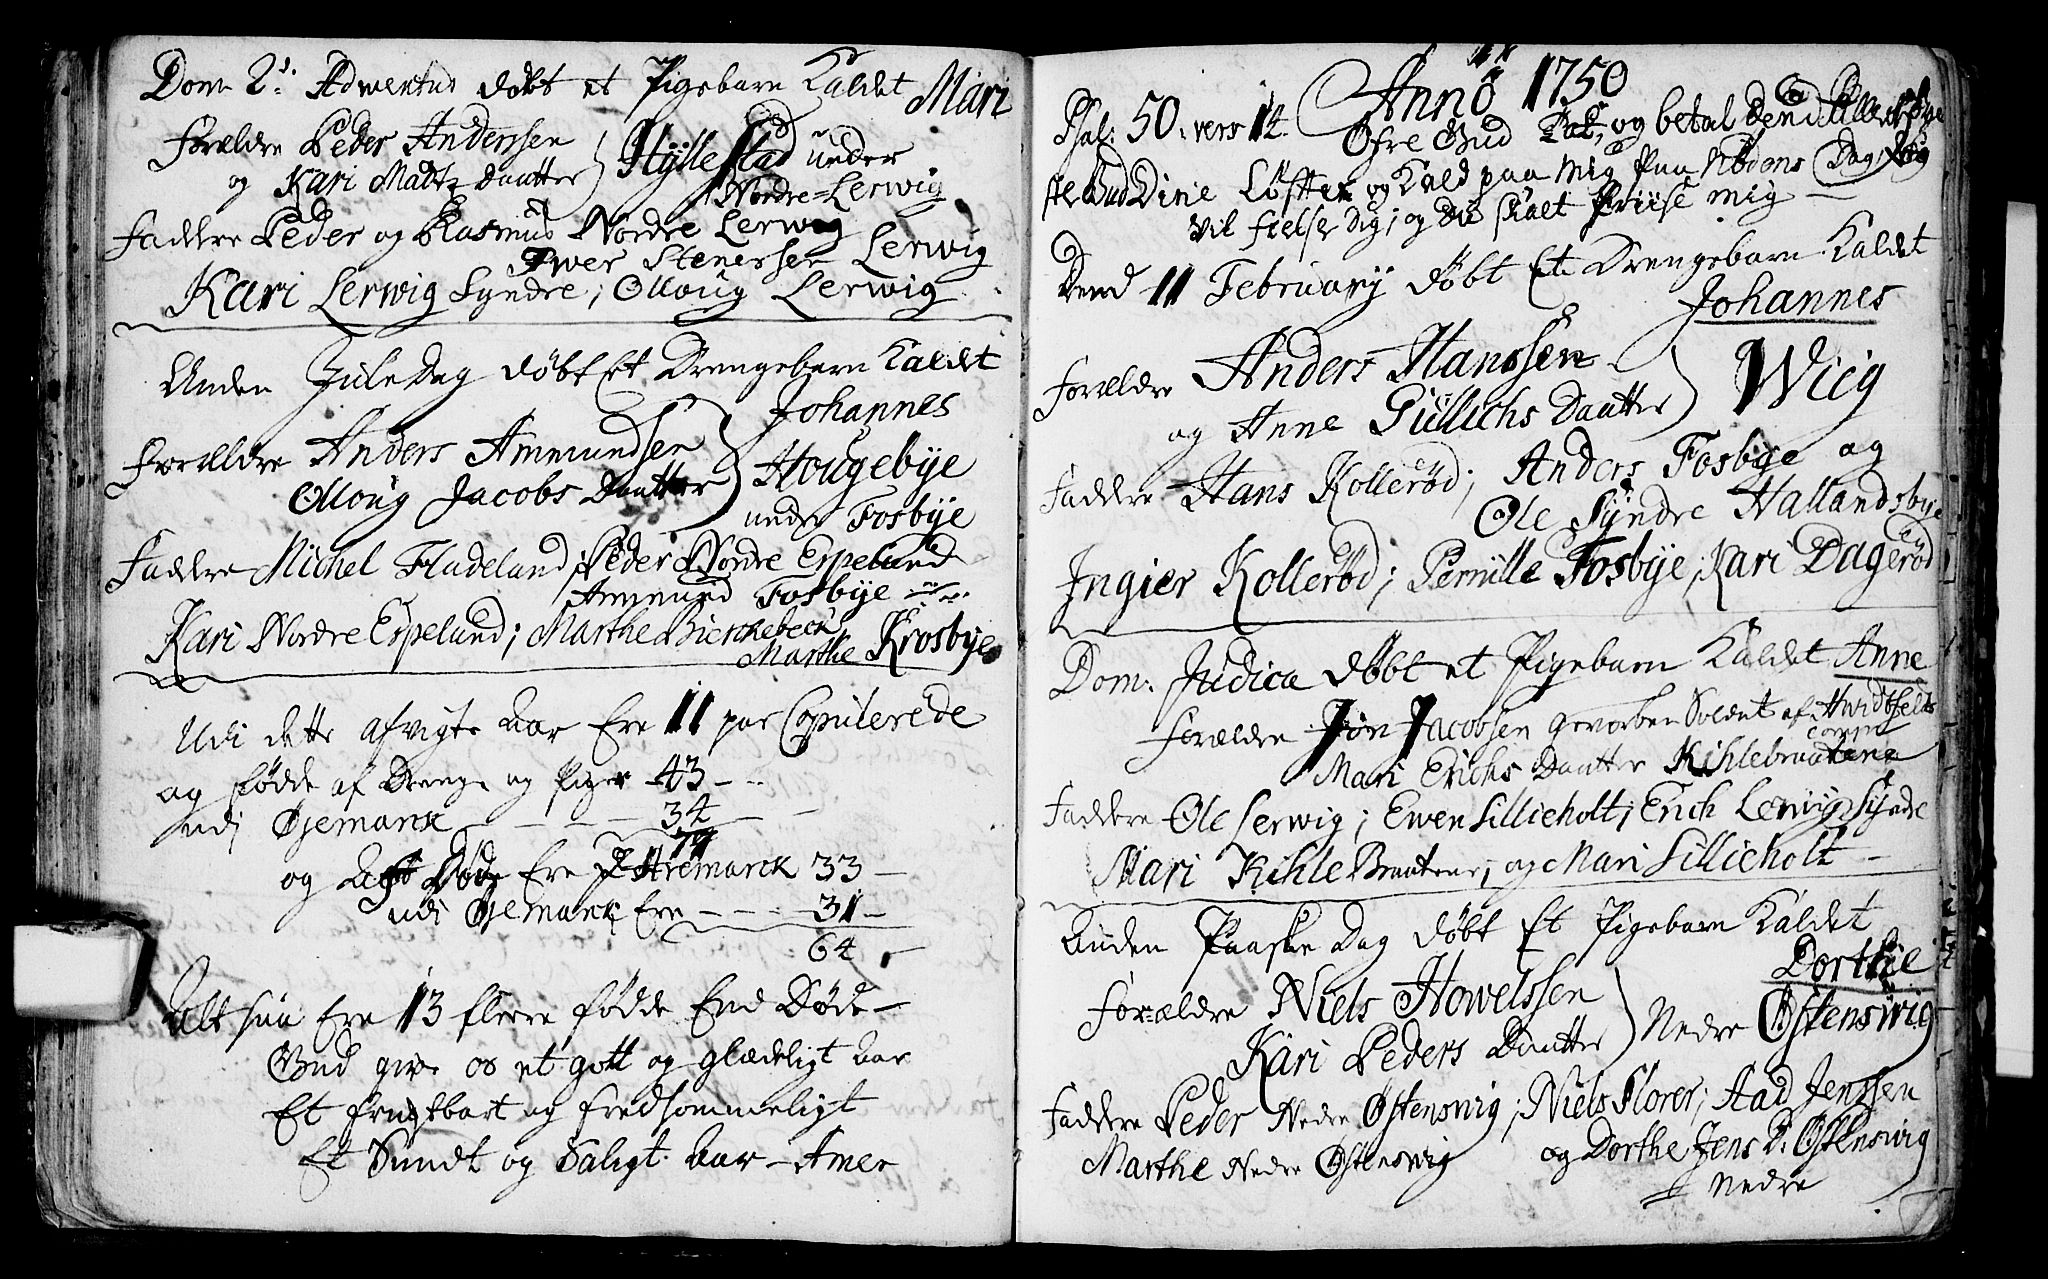 Dom 2d: Adventus døbt et Pigebarn Kaldet Mari
Forældre Peder Anderssen
og Kari Matz Daatter) Hyllestad under
Nordre=Lerwig
Faddere Peder og Rasmus Nordre Lerwig
Iwer Stenersen Lerwig
Kari Lerwig Syndre; Olloug Lerwig
Anden JuleDag døbt Et Drengebarn Kaldet
Johannes
Forældre Anders Ammundsen
Olloug Jacobs Daatter) Hougebye
under Fosbye
Faddere Michel Fladelund; Peder Nordre Espelund
Ammund Fosbye
Kari Nordre Espelund; Marthe Bierchebeck
Marthe Krosbye
Udi dette afvigte Aar Ere 11 par Copulerede
og fødde af Drenge og Piger 43 -
udi Øjemark - - - 34
77
og døde Ere J Aremarck 33 -
udi Øjemark Ere - - - 31 -
64 -
Alt saa Ere 13 fleere fødde End Døde -
Gud give os et gott og glædeligt Aar
Et Frugtbart og Fredsommeligt
Et Sundt og Saligt Aar - Amen
Anno 1750
Psal: 50. vers 14. Ofre Gud Tak, og betal den Allerhøye
ste Gud Dine Løfter og Kald paa mig paa Nødens Dag, Jeg
vil frelse dig, og Du skalt Priise mig -
Dend 11 February døbt Et Drengebarn Kaldet
Johannes
Forældre Anders Hanssen
og Anne Gullichs Daatter) Wiig
Faddere Hans Kollerød; Anders Fosbye og
Ole Syndre Hallandsbye
Ingier Kollerød; Pernille Fosbye; Kari Dagerød
Dom. Judica døbt et Pigebarn Kaldet Anne
Forældre Jon Jacobsen gevorben Soldat af Hvidtfelts
Comp
Mari Erichs Daatter Kihlebraatene
Faddere Ole Lerwig; Ewen Lillieholt; Erich Lerwig Syndre
Mari Kihle Braatene; og Mari Lillieholt -
Anden Paaske Dag døbt Et Pigebarn Kaldet
Dorthe
Forældre Niels Howelssen
Kari Peders Daatter) Nedre Østenswig
Faddere Peder Nedre Østenswig; Niels Florer; Aad Jenssen
Marthe Nedre Østenswig og Dorthe Jens D. Østenswig
Nedre